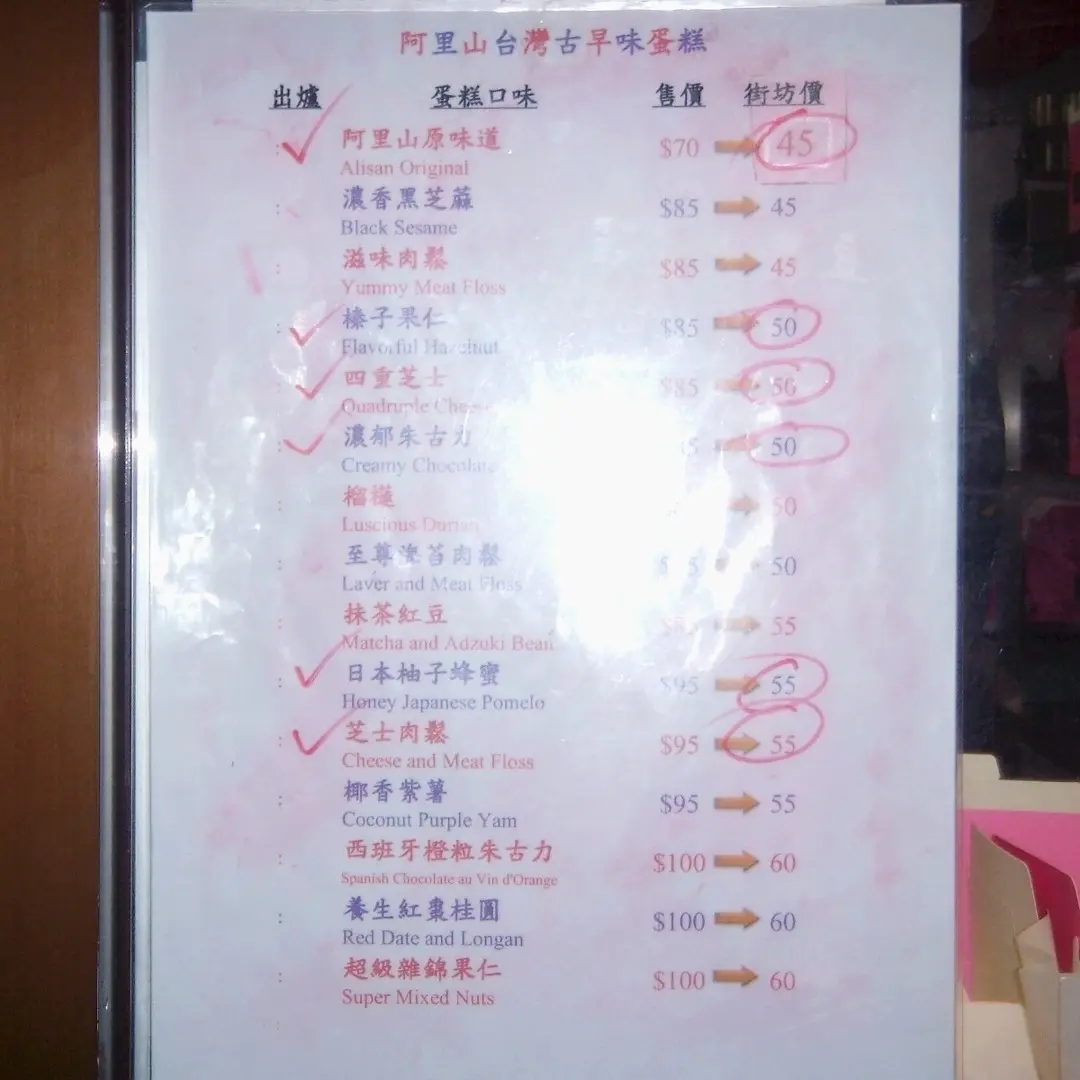 阿里山台灣古早味蛋糕
出爐 蛋糕口味 售價 街坊價
: 阿里山原味道 $70 45
Alisan Original
: 濃香黑芝蔴 $85 45
Black Sesame
: 滋味肉鬆 $85 45
Yummy Meat Floss
: 榛子果仁 $85 50
Flavorful Hazelnut
: 四重芝士 $85 50
Quadruple Cheese
: 濃郁朱古力 50
Creamy Chocolate
: 榴槤 50
Luscious Durian
: 至尊海苔肉鬆 50
Laver and Meat Floss
: 抹茶紅豆 55
Matcha and Adzuki Bean
: 日本柚子蜂蜜 $95 55
Honey Japanese Pomelo
: 芝士肉鬆 $95 55
Cheese and Meat Floss
: 椰香紫薯 $95 55
Coconut Purple Yam
: 西班牙橙粒朱古力 $100 60
Spanish Chocolate au Vin d'Orange
: 養生紅棗桂圓 $100 60
Red Date and Longan
: 超級雜錦果仁 $100 60
Super Mixed Nuts